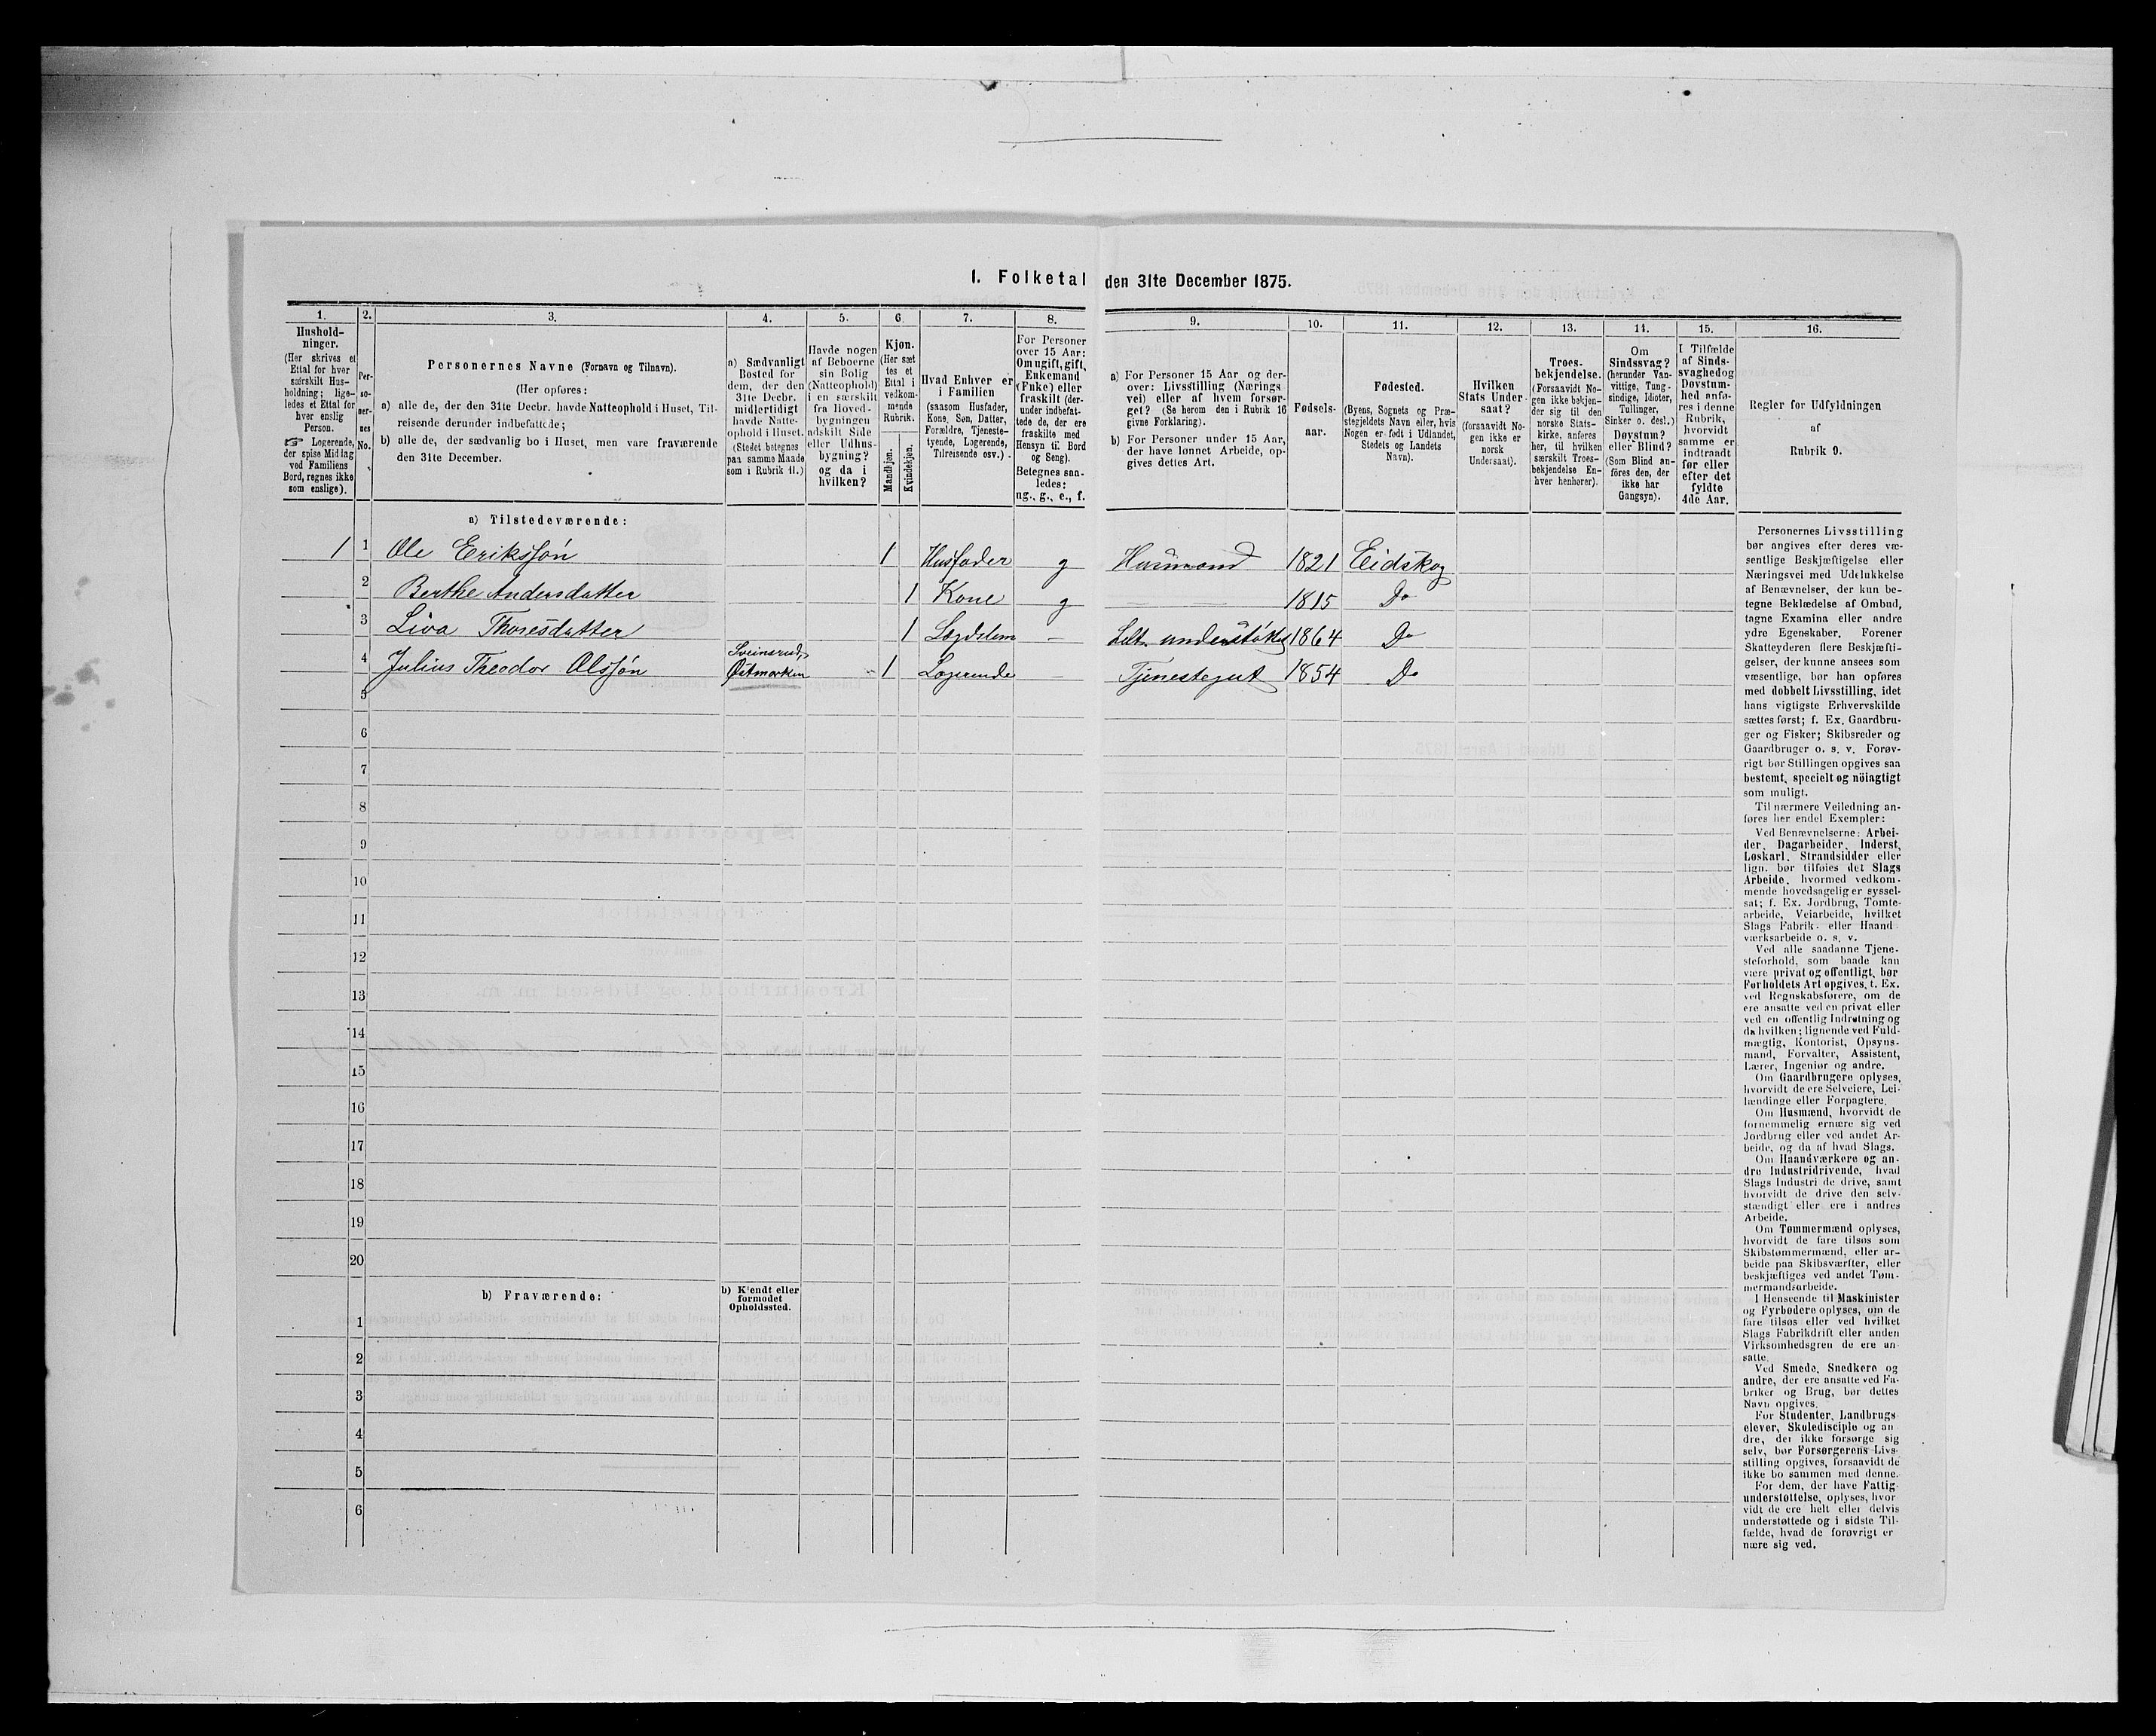 I. Folketal den 31te December 1875.
1.
Hushold-
ninger.
(Her skrives et
Ettal for hver
særskilt Hus-
holdning; lige-
ledes et Ettal for
hver enslig
Person.
☞ Logerende,
der spise Middag
ved Familiens
Bord, regnes ikke
som enslige).
2.
Per-
so-
ner-
nes
No.
3.
Personernes Navne (Fornavn og Tilnavn).
(Her opføres:
a) alle de, der den 31te Decbr. havde Natteophold i Huset, Til-
reisende derunder indbefattede;
b) alle de, der sædvanlig bo i Huset, men vare fraværende
den 31te December.
4.
a) Sædvanligt
Bosted for
dem, der den
31te Decbr.
midlertidigt
havde Natte-
ophold i Huset.
(Stedet betegnes
paa samme Maade
som i Rubrik 11.)
5.
Havde nogen
af Beboerne
sin Bolig
(Natteophold)
i en særskilt
fra Hoved-
bygningen
adskilt Side
eller Udhus-
bygning?
og da i
hvilken?
6.
Kjøn.
(Her sæt
tes et
Ettal i
vedkom-
mende
Rubrik.
Mandkjøn.
Kvindekjøn.
7.
Hvad Enhver er
i Familien
(saasom Husfader,
Kone, Søn, Datter,
Forældre, Tjeneste-
tyende, Logerende,
Tilreisende osv.)
8.
For Personer
over 15 Aar:
Om ugift, gift,
Enkemand
(Enke) eller
fraskilt (der-
under indbefat-
tede de, der ere
fraskilte med
Hensyn til Bord
og Seng).
Betegnes saa-
ledes:
ug., g., e., f.
9.
a) For Personer 15 Aar og der-
over: Livsstilling (Nærings
vei) eller af hvem forsør-
get? (Se herom den i Rubrik 16
givne Forklaring).
b) For Personer under 15 Aar,
der have lønnet Arbeide, op-
gives dettes Art.
10.
Fødsels-
aar.
11.
Fødested.
(Byens, Sognets og Præ-
stegjeldets Navn eller, hvis
Nogen er født i Udlandet,
Stedets og Landets
Navn).
12.
Hvilken
Stats Under-
saat?
(forsaavidt No-
gen ikke er
norsk
Undersaat).
13.
Troes-
bekjendelse.
(Forsaavidt No-
gen ikke bekjen-
der sig til den
norske Stats-
kirke, anføres
her, til hvilken
særskilt Troes-
bekjendelse En-
hver henhører).
14.
Om
Sindssvag?
(herunder Van-
vittige, Tung-
sindige, Idioter,
Tullinger,
Sinker o. desl.)
Døvstum?
eller Blind?
(Som Blind an-
føres den, der
ikke har
Gangsyn).
15.
I Tilfælde
af Sinds-
svaghed og
Døvstum-
hed anfø-
res i denne
Rubrik,
hvorvidt
samme er
indtraadt
før eller
efter det
fyldte
4de Aar.
16.
Regler for Udfyldningen
af
Rubrik 9.
a) Tilstedeværende:
1 1 Ole Eriksjøn 1 Husfader g Husmand 1821 Eidskog
2 Berthe Andersdatter 1 Kone g 1815 Do
3 Liva Thoresdatter 1 Lægdslem - understöttet 1864 Do
4 Julius Theodor Olsjøn Sveinsrud, Østmarken 1 Logerende - Tjenestegut 1854 Do
5
6
7
8
9
10
11
12
13
14
15
16
17
18
19
20
b) Fraværende:
b) Kjendt eller
formodet
Opholdssted.
1
2
3
4
5
6
Personernes Livsstilling
bør angives efter deres væ-
sentlige Beskjæftigelse eller
Næringsvei med Udelukkelse
af Benævnelser, der kun be-
tegne Beklædelse af Ombud,
tagne Examina eller andre
ydre Egenskaber. Forener
Skatteyderen flere Beskjæfti-
gelser, der kunne ansees som
væsentlige, bør han opføres
med dobbelt Livsstilling, idet
hans vigtigste Erhvervskilde
sættes først; f. Ex. Gaardbru-
ger og Fisker; Skibsreder og
Gaardbruger o. s. v. Forøv-
rigt bør Stillingen opgives saa
bestemt, specielt og nöiagtigt
som muligt.
Til nærmere Veiledning an-
føres her endel Exempler:
Ved Benævnelserne: Arbei-
der, Dagarbeider, Inderst,
Løskarl, Strandsidder eller
lign. bør tilføies det Slags
Arbeide, hvormed vedkom-
mende hovedsagelig er syssel-
sat; f. Ex. Jordbrug, Tomte-
arbeide, Veiarbeide, hvilket
Slags Fabrik- eller Haand-
værksarbeide o. s. v.
Ved alle saadanne Tjene-
steforhold, som baade kan
være privat og offentligt, bør
Forholdets Art opgives, t. Ex.
ved Regnskabsførere, om de
ere ansatte ved en privat eller
ved en offentlig Indretning og
da hvilken; lignende ved Fuld-
mægtig, Kontorist, Opsyns-
mand, Forvalter, Assistent,
Lærer, Ingeniør og andre.
Om Gaardbrugere oplyses,
hvorvidt de ere Selveiere, Lei-
lændinge eller Forpagtere.
Om Husmænd, hvorvidt de
fornemmelig ernære sig ved
Jordbrug eller ved andet Ar-
beide, og da af hvad Slags.
Om Haandværkere og an-
dre Industridrivende, hvad
Slags Industri de drive, samt
hvorvidt de drive den selv-
stændigt eller ere i andres
Arbeide.
Om Tømmermænd oplyses,
hvorvidt de fare tilsøs som
Skibstømmermænd, eller ar-
beide paa Skibsværfter, eller
beskjæftiges ved andet Tøm-
mermandsarbeide.
I Henseende til Maskinister
og Fyrbødere oplyses, om de
fare tilsøs eller ved hvilket
Slags Fabrikdrift eller anden
Virksomhedsgren de ere an-
satte.
Ved Smede, Snedkere og
andre, der ere ansatte ved Fa-
briker og Brug, bør dettes
Navn opgives.
For Studenter, Landbrugs-
elever, Skoledisciple og an-
dre, der ikke forsørge sig
selv, bør Forsørgerens Livs-
stilling opgives, forsaavidt de
ikke bo sammen med denne.
For dem, der have Fattig-
understøttelse, oplyses, hvor-
vidt de ere helt eller delvis
understøttede og i sidste Til-
fælde, hvad de forøvrigt er-
nære sig ved.